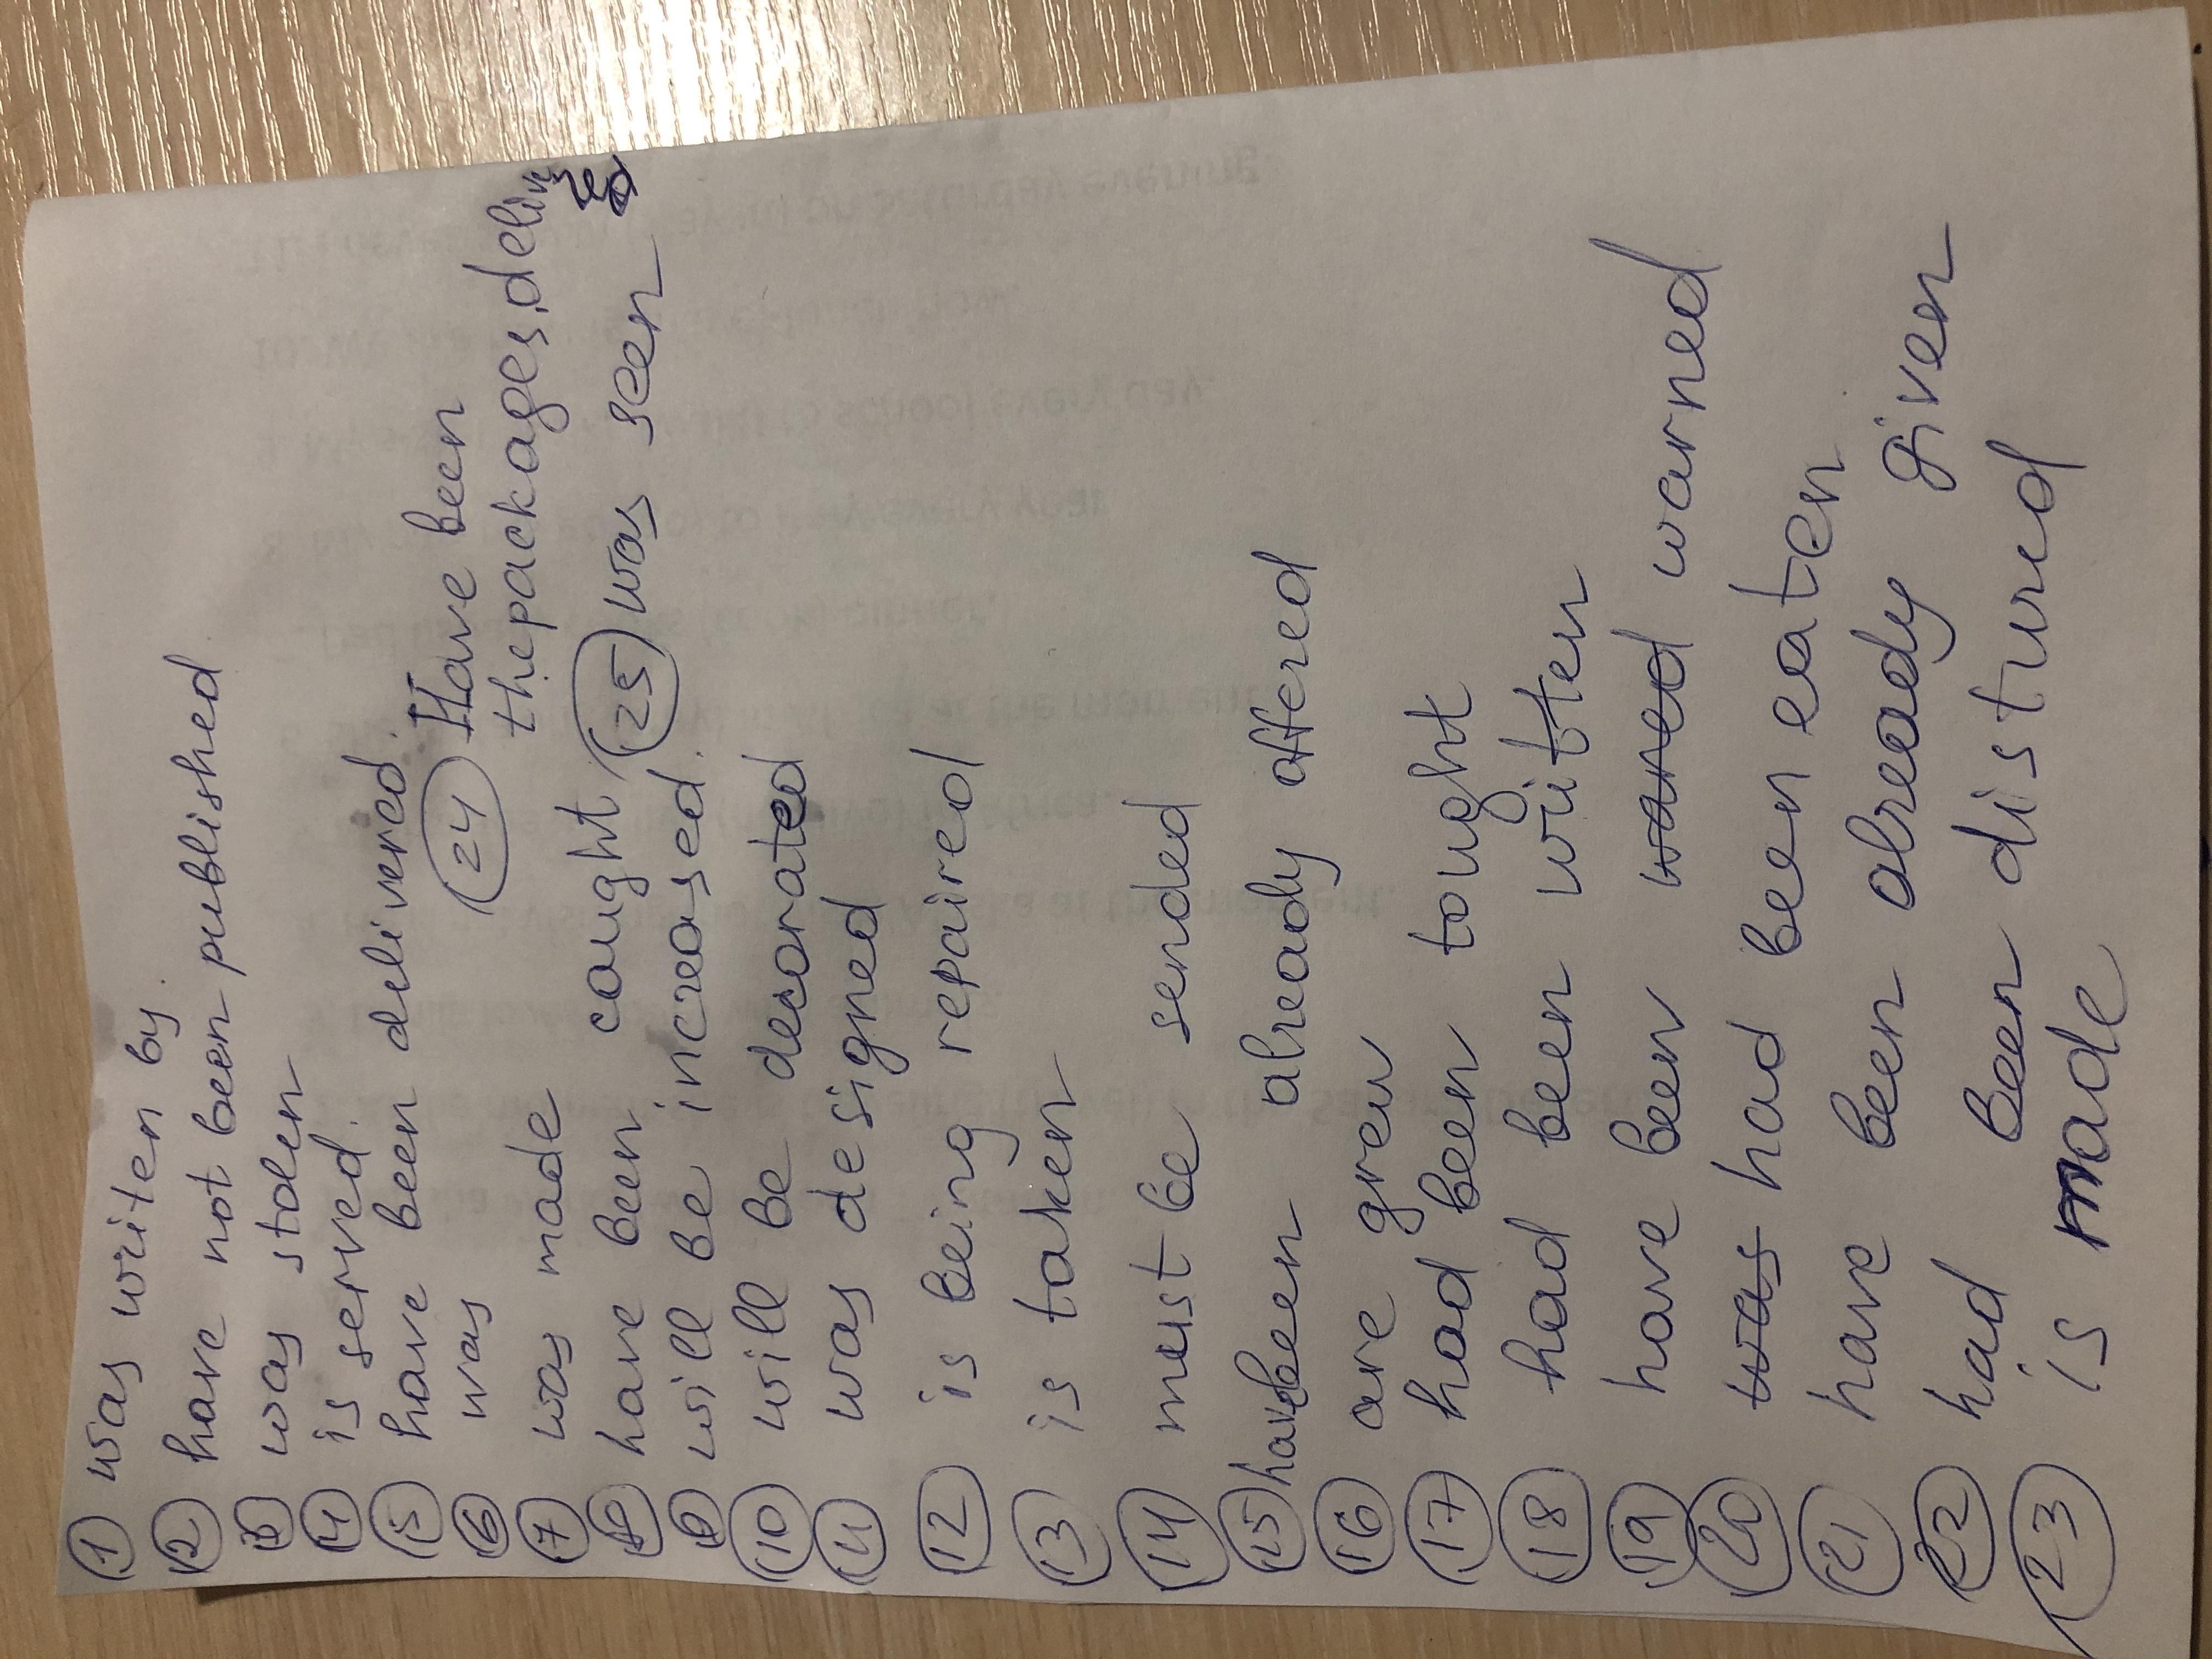 ① was writen by.
② have not been published
③ was stolen
④ is served.
⑤ have been delivered.
⑥ was
⑦ was made
⑧ have been cought
⑨ will be increased.
⑩ will be decorated
⑪ was designed
⑫ is being repaired
⑬ is taken
⑭ must be sended
⑮ have been already offered
⑯ are grew
⑰ had been tought
⑱ had been written
⑲ have been wared warned
⑳ was had been eaten
㉑ have been already given
㉒ had been distured
㉓ is made
㉔ Have been
the packages delivered
㉕ was seen